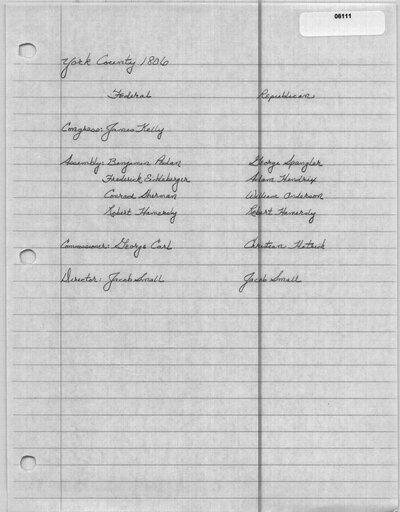 06111
York County 1806
Federal Republican
Congress: James Kelly
Assembly: Benjamin Pedan George Spangler
Frederick Eichelberger Adam Hendrix
Conrad Sherman William Anderson
Robert Hamersly Robert Hamersly
Commissioner: George Carl Christian
Director: Jacob Small Jacob Small